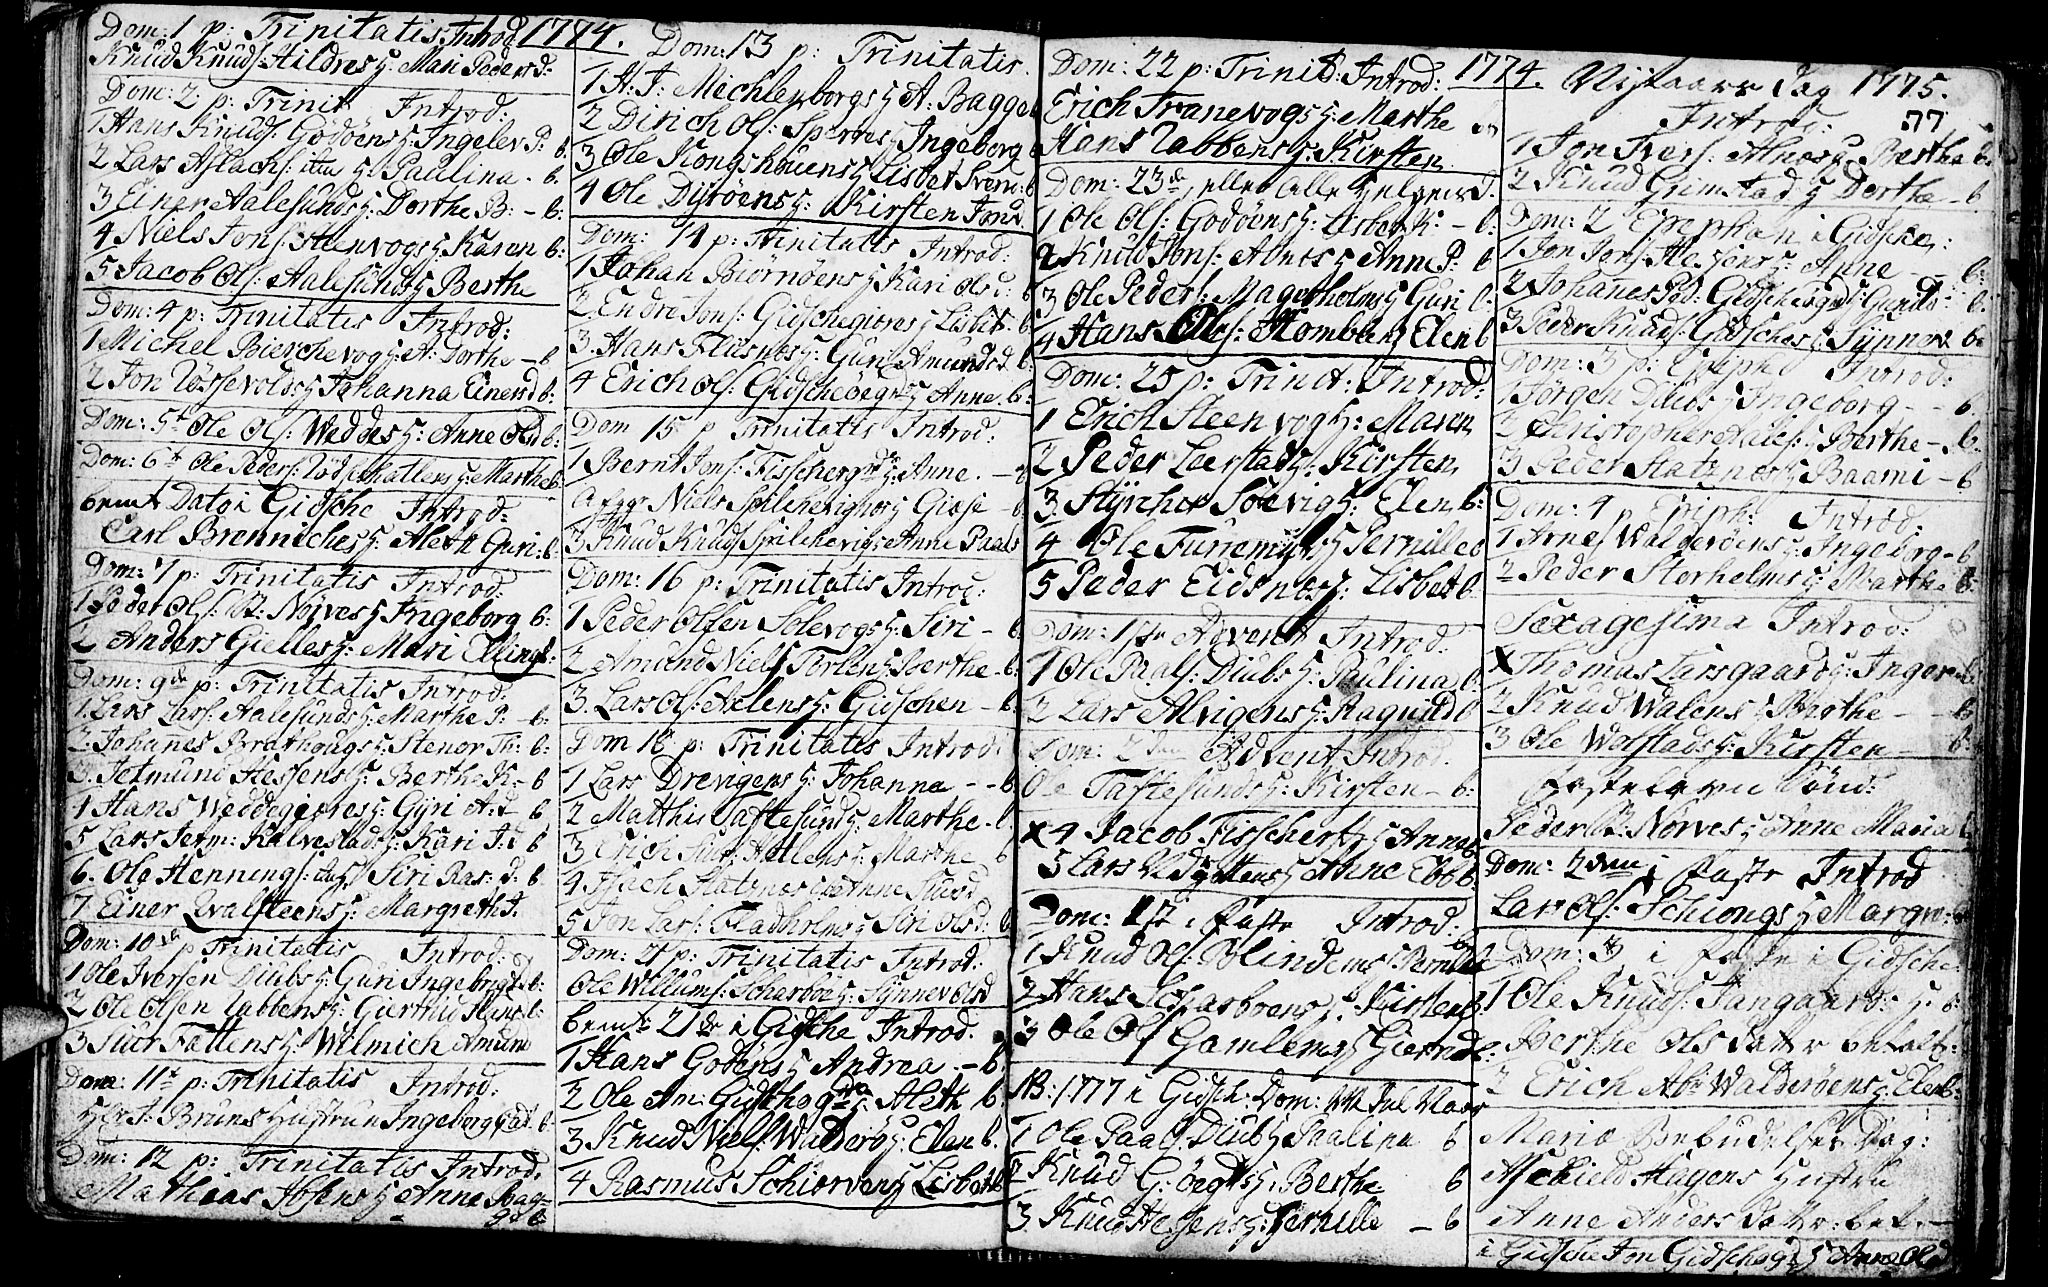 Dom: 1 p: Trinitatis Introd 1774.
Knud Knuds: Hildres H: Mari Peders D:
Dom: 2 p: Trinit Introd:
1 Hans Knuds: Godöens H: Ingeler P: b.
2 Lars Aslachs: H Paulina. b.
3 Einer Aalesunds H: Dorthe B: - b:
4 Niels Jons: Steenvogs H Karen b:
5 Jacob Ols: Aalesunds H Berthe
Dom: 4 p: Trinitatis Introd:
1 Michel Bierchevogs H: A: Dorthe - b
2 Jon H Johanna Einersd b:
Dom: 5t Ole Ols: Weddes H: Anne Olsd b:
Dom: 6t Ole Peders: H: Marthe b:
bemt Dato i Gidsche Introd:
Carl Brenniches H: Aleth Guri: b:
Dom: 7 p: Trinitatis Introd:
1 Peder Ols: Nörves H Ingeborg b:
2 Anders Gielles H: Mari Ellings:
Dom: 9de p: Trinitatis Introd:
1. Lars Lars: Aalesunds H: Marthe P: - b:
2 Johannes Brathougs H: Stenor Th: b:
3. Jetmund Hessens H: Berthe K: - b
4 Hans Weddegierres H: Gyri A: d b
5 Lars Jerm: Kalvestads H: Kari J: d b
6. Ole Hennings: Siri Ras: d: b
7 Einer Qvalsteens H: Margreth J.
Dom: 10de p Trinitatis Introd:
1 Ole Iversen Diubs H: Guri Ingebrigtsd b:
2 Ole Olsen Tabbens H: Gierthrud Hans b:
3 Siur Fattens H: Wilmich Amund
Dom: 11t p: Trinitatis Introd:
Hr A: Bruns Hustrue Ingeborg Cat. b:
Dom: 12 p: Trinitatis Introd.
Mathias Ibsens H Anne Bag-
ge b
Dom: 13 p: Trinitatis.
1 H. J: Mechlenborgs H A: Bagge b
2 Dirich Ols: Sperres H Ingeborg b
3 Ole Kongshouens H Lisbet Svend: b
4 Ole Disröens H: Kirsten Jonsd
Dom: 14 p: Trinitatis Introd:
1 Johan Biörnöens H Kari Olsd: b
2 Endre Jons: Gidschegierres H Lisbet: b
3. Hans Flusnes H: Guri Amundsd. b:
4 Erich Ols: Gidscheöegds H Anne. b:
Dom 15 p Trinitatis Introd:
1 Bernt Jons: Fisschergrds H: Anne. - b
Niels Spilchevighors H Giøse - b
3 Knud Knuds Spilchevigs Anne Paals
Dom: 16 p: Trinitatis Introd:
1 Peder Olsen Solevogs H: Siri - b.
2 Amund Niels Torlens H Berthe - b:
3. Lars Ols: Axlens H: Gidschen - b.
Dom 18 p: Trinitatis Introd:
1 Lars Drevigens H: Johanna - - b
2 Mathis Taftesunds H: Marthe - b
3 Erich Siur: Hellens H: Marthe b
4 Slatznes Anne Siursd
5 Jon Lars: Fladholms H Siri Olsd: b
Dom: 21 p: Trinitatis Introd:
Ole Willums: Scharboes H: Synnev Olsd
bemt 21de i Gidsche Introd.
1 Hans Godöens H Andrea - b
2 Ole An: Gidschögds H: Aleth b
3 Knud Niels: Walderö H: Elen b.
4 Rasmus Schiörvens H Lisbet b
Dom: 22 p: Trinit: Introd: 1774.
Erich Tranevogs H: Marthe
Hans Tabbens H: Kirsten
Dom: 23de, eller Alle Helgens D.
1 Ole Ols: Godöens H: Lisbet K. - b:
2 Knud Jons: Alnes H Anne P: b
3 Ole Peders: Mageholms H Guri b:
4 Hans Ols: Slombens Elen b
Dom: 25 p: Trinit: Introd:
1 Erich Steenvogs H: Maren
2 Peder Leerstads H: Kirsten
3 Styrcher Solevigs H: Elen b:
4 Ole Furremyrs H Pernille b
5 Peder Eidsnes H: Lisbet b
Dom: 1ste Advent Introd:
1 Ole Paals: Diubs H: Paulina b.
2 Lars Alvigens H: Ragnild b
Dom: 2den Advent Introd.
Ole Taftesunds H: Kirsten - b:
x 4 Jacob Fisschers H Anne b.
5 Lars H Anne Ebb b.
Dom: 1ste i Faste Introd:
1 Knud Ols: Blindems H: Pernille b
2 Hans Scharboens H: Kirsten b
3 Ole Ols Gamlems H Gierrud b:
NB: 1777 i Gidsch: Dom:
1 Ole Paals. Diubs H Paalina b
2 Knud G: öegds H: Berthe b
3. Knud Hessens H: Pernille - b
Nytaars Dag 1775.
Introd: 77
1 Jon Ivers: Alnes H Berthe b:
2 Knud Grimstad H Dorthe - b
Dom: 2 Epiphan i Gidsche:
1 Jon Jons: Hessens H: Anne - - b:
2 Johannes Ped: Gidscheögds H: Gunild - b:
3 Peder Knuds: Gidsches H: Synnev b:
Dom: 3 p: Epiph Introd:
1 Jørgen Diubs H Ingeborg - - b.
2 Christopher Aales: H Berthe - b.
3 Peder Slatznes H Baarni - b
Dom: 4 p Epiph: Introd:
1 Arnes Walderöens H: Ingeborg - b
2 Peder Storholms H: Marthe b:
Sexagesima Introd:
x Thomas Larsgaards H: Inger b
2 Knud Walens H Berthe - - b
3 Ole Wolstads H: Kirsten - b:
Fastelavns Sönd:
Peder Nörves H Anne Maria b
Dom: 2den i Faste Introd
Lars Ols: Schiongs H Margre:
Dom: 3 i Faste i Gidsche:
1 Ole Knuds: Tangaards: H b:
Berthe Ols Datter
2 Erich Abr Walderöens H: Elen b:
Mariæ Bebudelses Dag:
Aschield Hagens Hustru
Anne Anders Datter: bet. -
i Gidsche Jon Gidschög: H Anne Olsd